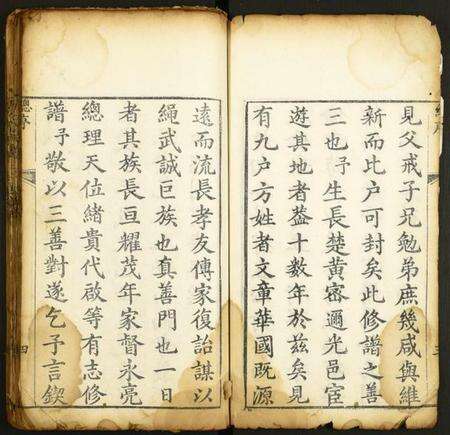 見父戒子兄勉弟庶幾咸與維
新而此户可封矣此修譜之善
三也予生長楚黃密邇光邑宦
遊其地者葢十數年於茲矣見
有九户方姓者文章華國既源
遠而流長孝友傳家復詒謀以
繩武誠巨族也真善門也一日
者其族長亘耀茂年家督永亮
總理天位緒貴代啟等有志修
譜予敬以三善對遂乞予言鍥
總序
四